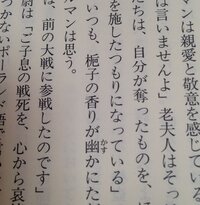 マンは親愛と敬意を感じている
は言いませんよ」老夫人はそっ
たちは、自分が奪ったものを、に
を施したつもりになっている」
いつも、梔子の香りが幽かにた
かす
ルマンは思う。
は、前の大戦に参戦したのです」
尉は「ご子息の戦死を、心から哀
つかないポーランド語で